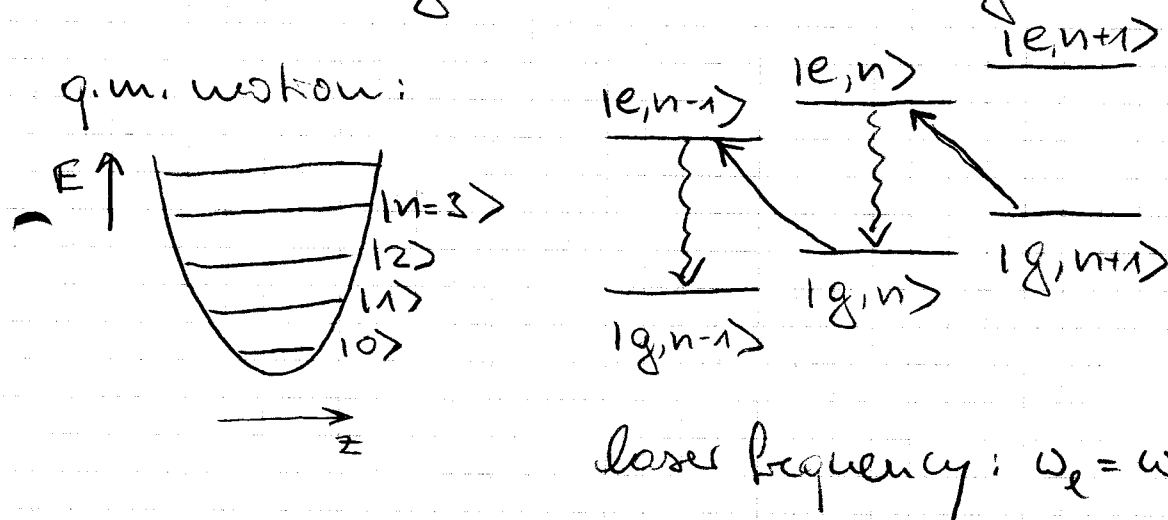 q.m. motion:
E
|n=3>
|2>
|1>
|0>
z
|e,n-1>
|e,n>
|e,n+1>
|g,n-1>
|g,n>
|g,n+1>
laser frequency: ω_l = ω